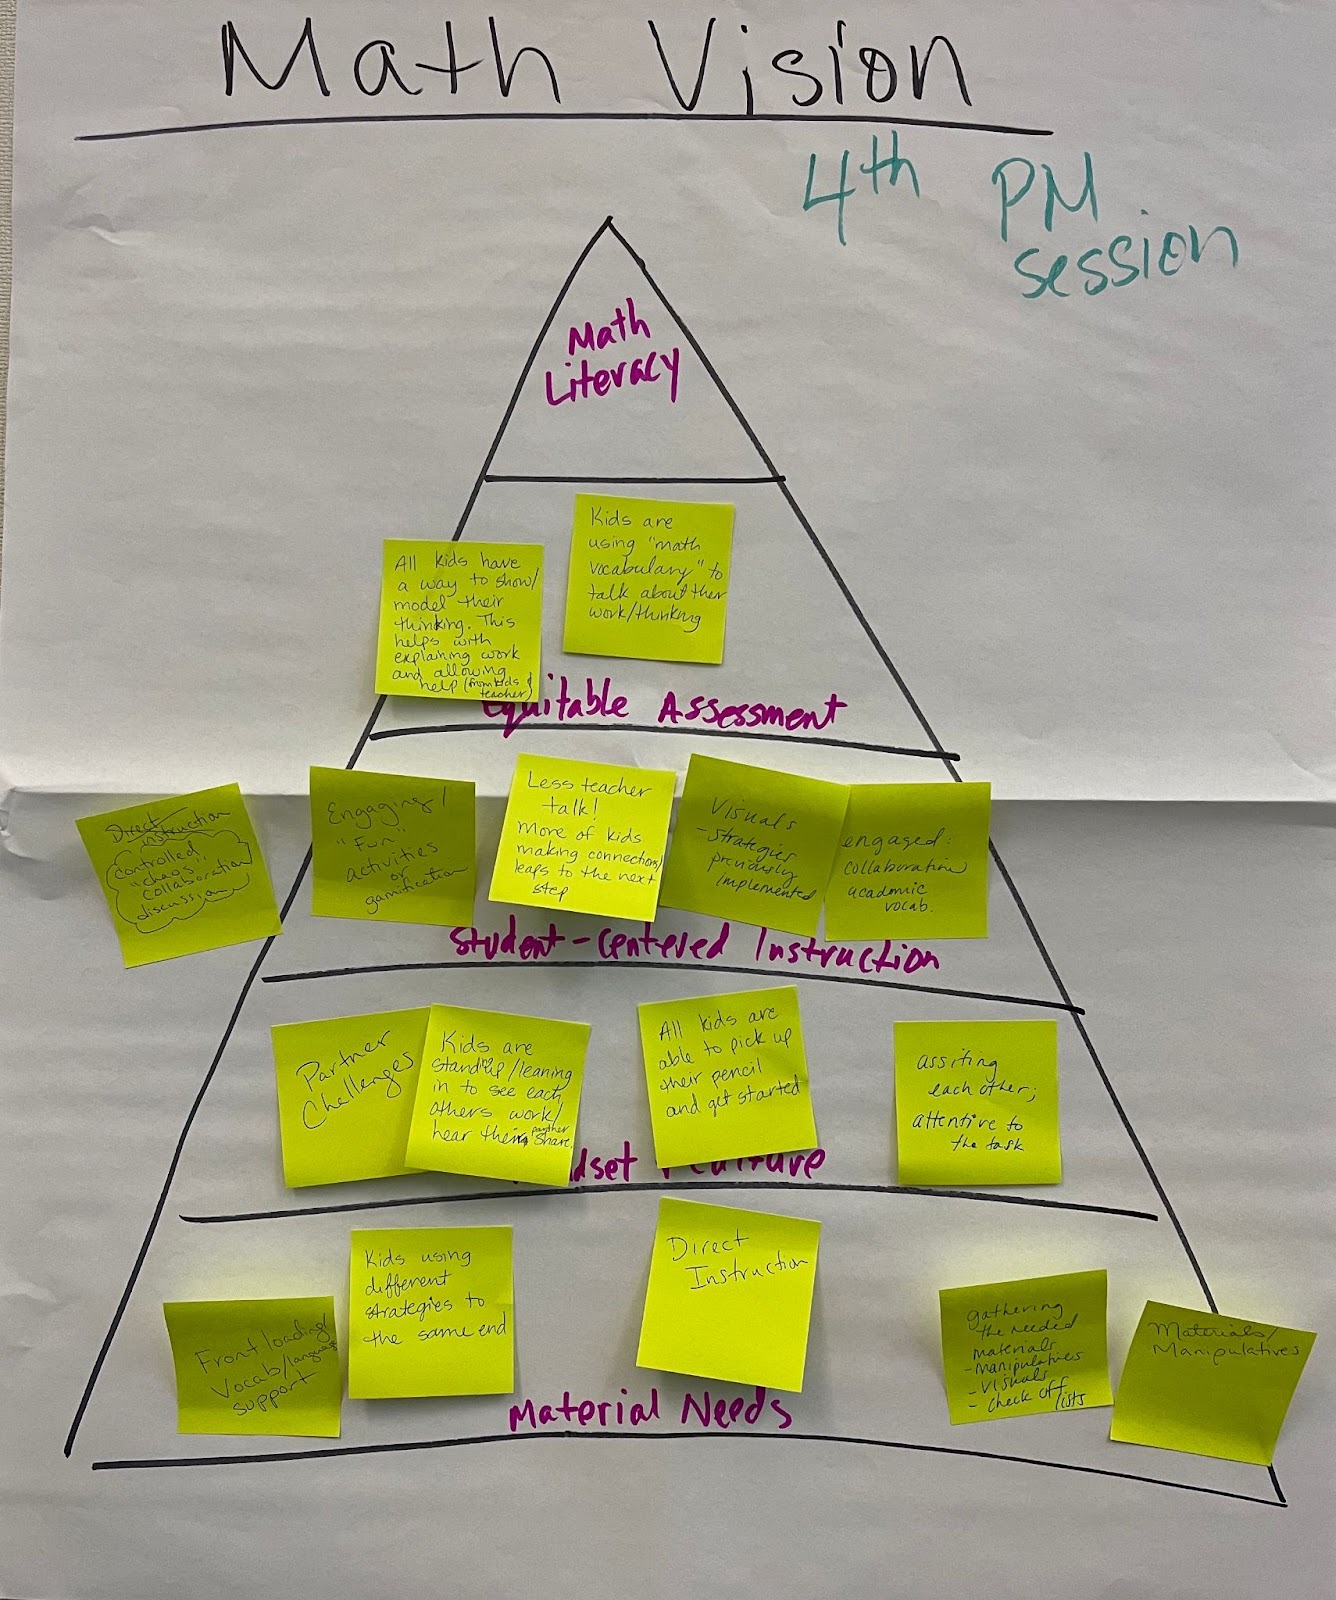 Math Vision
4th PM
session
Math
Literacy
All kids have
a way to show/
model their
thinking. This
helps with
explaining work
and allowing
help (from kids &
teacher)
Kids are
using "math
vocabulary" to
talk about their
work/thinking
Equitable Assessment
Direct
instruction
controlled
"chaos"
collaboration
discussion
Engaging/
"Fun"
activities
or
gamification
Less teacher
talk!
More of kids
making connections/
leaps to the next
step
Visuals
-strategies
previously
implemented
engaged:
collaboration
acadmic
vocab.
Student-Centered Instruction
Partner
Challenges
Kids are
standing/leaning
in to see each
others work/
hear their partner
share.
All kids are
able to pick up
their pencil
and get started
assiting
each other;
attentive to
the task
dset Culture
Front loading/
Vocab/language
support
Kids using
different
strategies to
the same end
Direct
Instruction
gathering
the needed
materials
-Manipulatives
-Visuals
- check off
lists
Materials/
Manipulatives
Material Needs